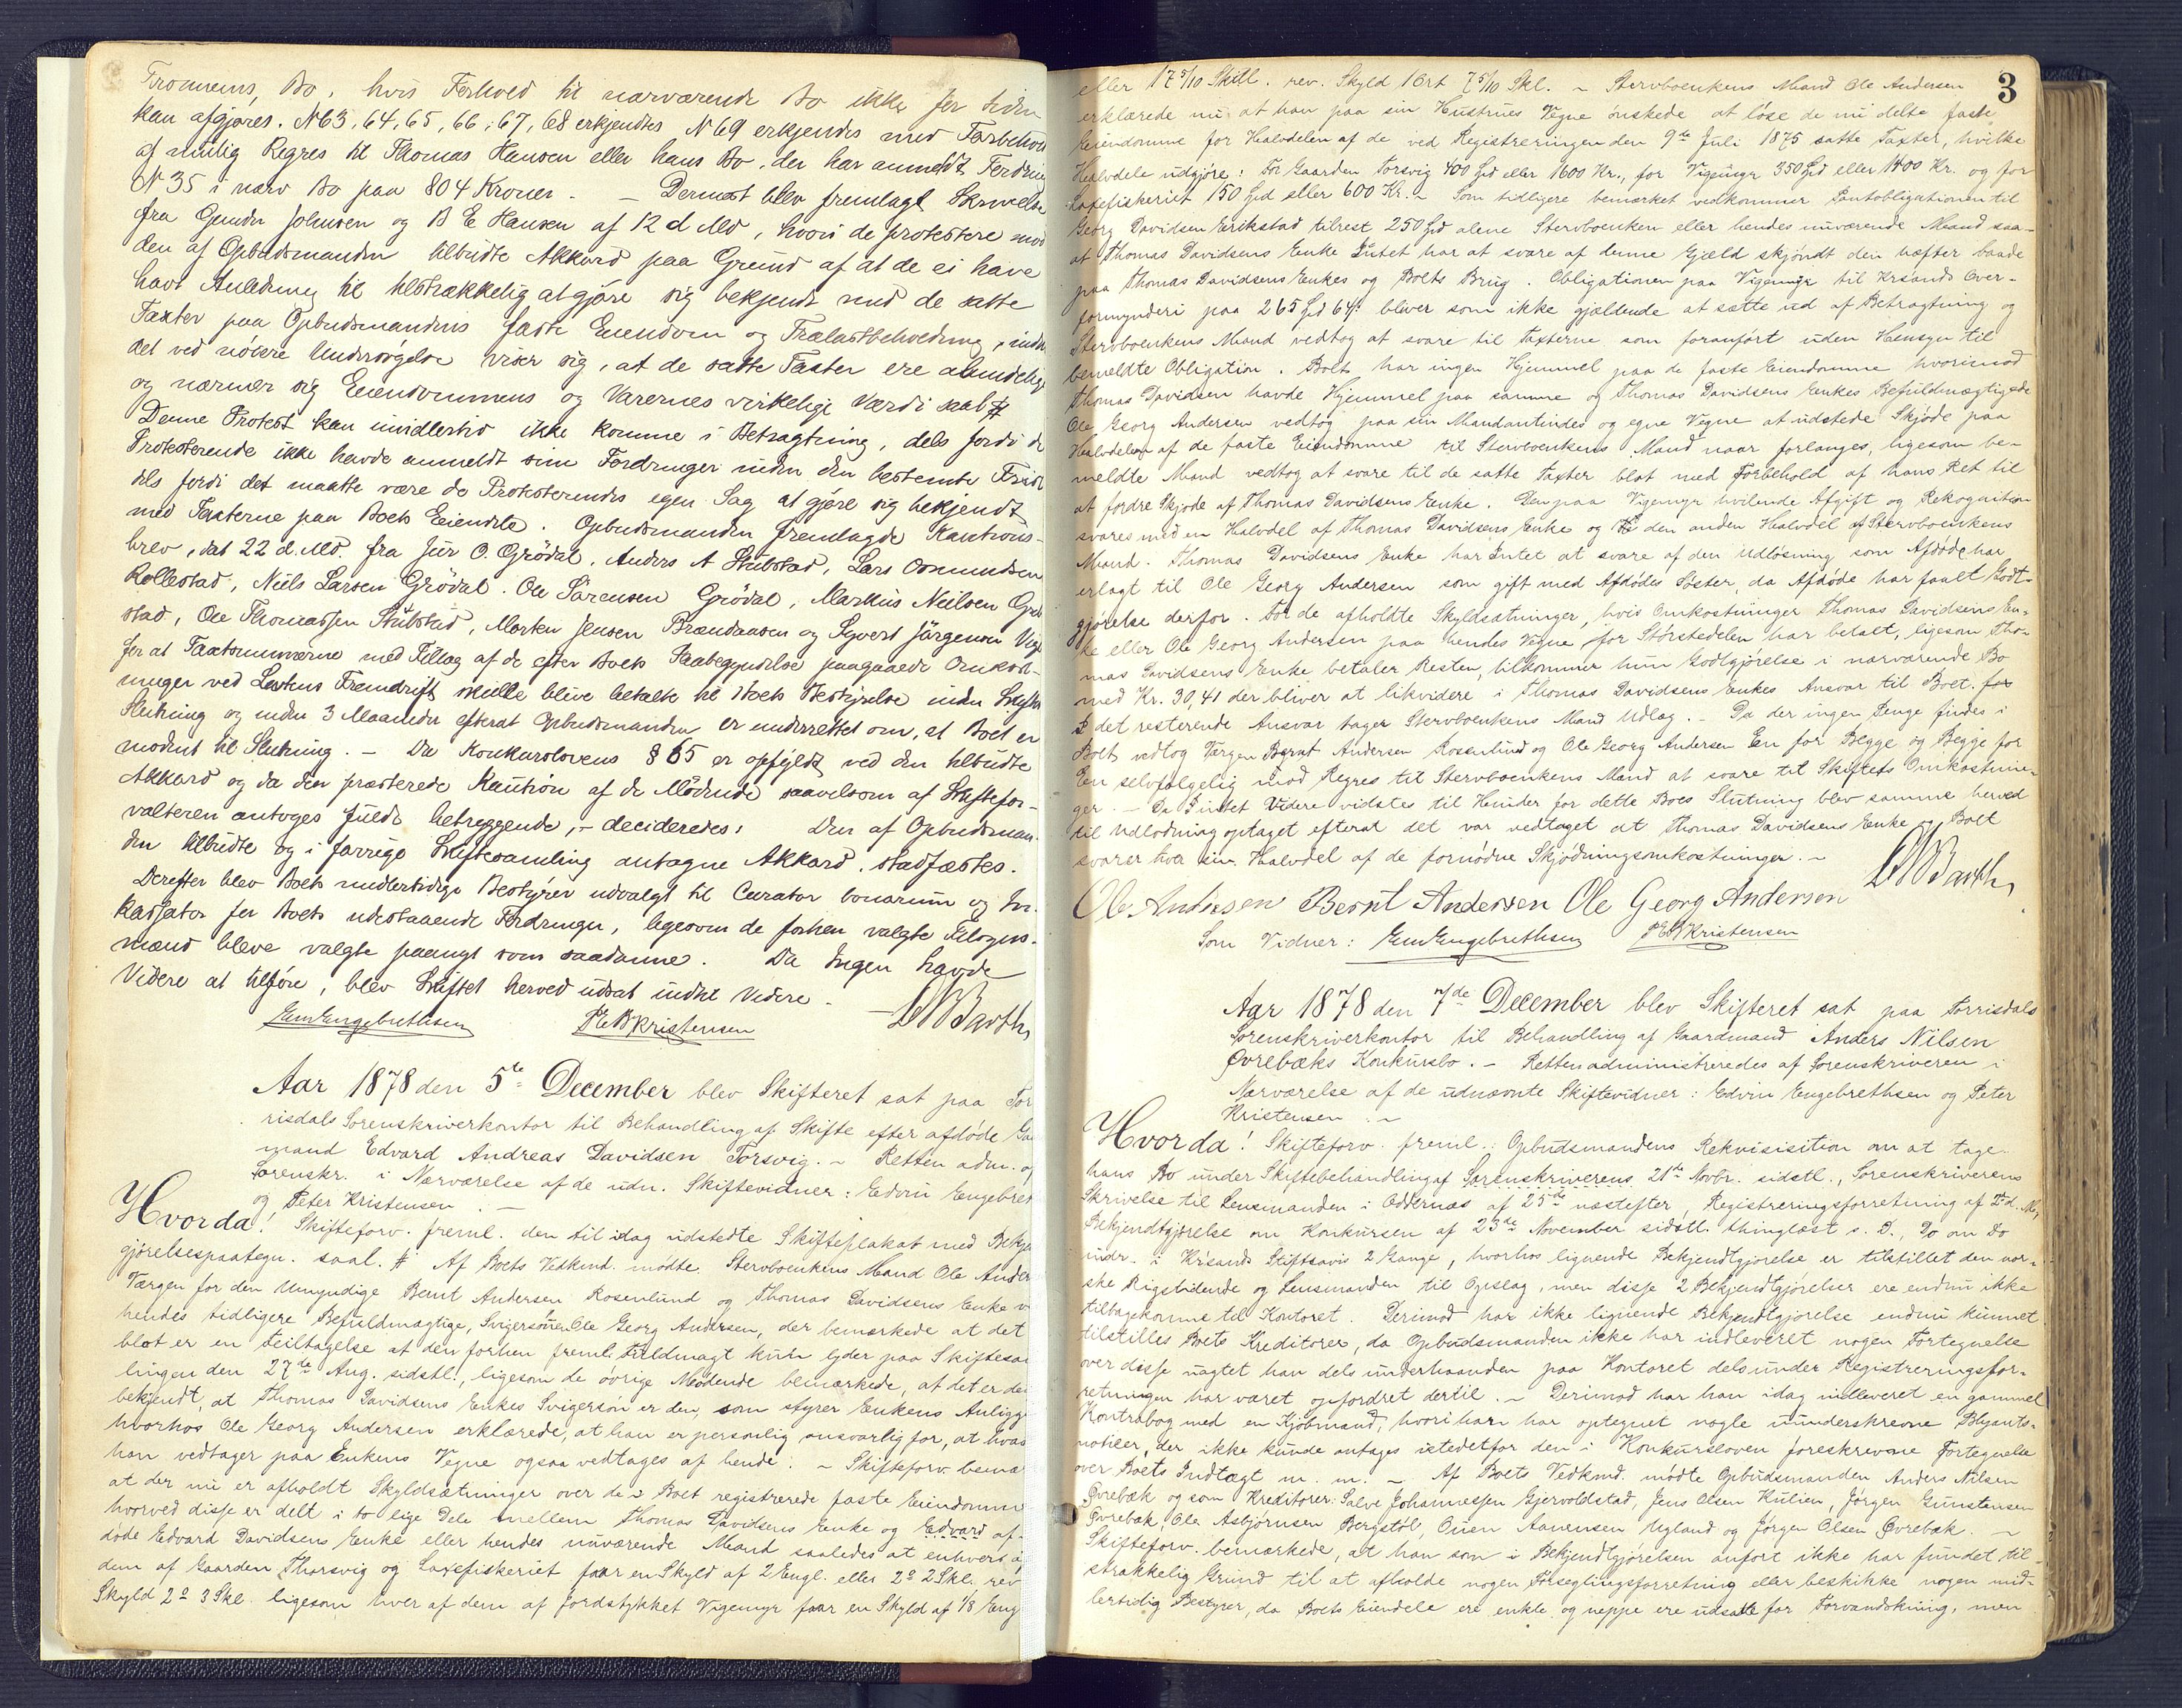 Tronnens, Bo, hvis Forhold til nærværende Bo ikke før siden
kan afgjøres. N 63, 64, 65, 66, 67, 68 erkjendtes N 69 erkjendes med Forbehold
af mulig Regres til Thomas Hansen eller hans Bo, der har anmeldt Fordring
N 35 i nærv Bo paa 804 Kroner. - Dernæst blev fremlagt Skrivelse
fra Gunder Johnsen og B E Hansen af 12 d Md, hvori de protestere mod
den af Opbudsmanden tilbudte Akkord paa Grund af at de ei have
havt Anledning til tilstrækkelig at gjøre sig bekjendt med de satte
Taxter paa Opbudsmandens faste Eiendom og Trælastbeholdning, inden
det ved nöiere Undersögelse viser sig, at de satte Taxter ere almindelige
og nærmer sig Eiendommens og Varernes virkelige Værdi saal #
Denne Protest kan imidlertid ikke komme i Betragtning, dels fordi de
Protesterende ikke havde anmeldt sine Fordringer inden den bestemte Frist
dels fordi det maatte være de Protesterendes egen Sag at gjøre sig bekjendt
med Taxterne paa Boets Eiendele. Opbudsmanden fremlagde Kautions-
brev, dat 22 d. Md. fra Jur O. Grödal, Anders A Stubstad, Lars Osmundsen
Rollestad, Niels Larsen Grödal. Ole Sörensen Grödal, Markus Neilsen Grö
stad, Ole Thomassen Stubstad, Morten Jensen Brændaasen og Syvert Jörgensen Vig
for at Taxtsummerne med Tillæg af de efter Boets Taabegyndelse paagaaede Omkost-
ninger ved Levkens Fremdrift skulle blive betalte til Boets Bestyrelse inden Skiftets
Slutning og inden 3 Maaneder efterat Opbudsmanden er underrettet om, at Boet er
modent til Slutning. - Da Konkurslovens § 65 er opfyldt ved den tilbudte
Akkord og da den præsterede Kaution af de Mødende saavelsom af Skiftefor-
valteren antoges fuldt betryggende, - decideredes: Den af Opbudsman-
den tilbudte og i forrige Skiftesamling antagne Akkord, stadfæstes.
Derefter blev Boets midlertidige Bestyrer udvalgt til Curator bonorum og In-
kassator for Boets udestaaende Fordringer, ligesom de forhen valgte Tilsyns-
mænd bleve valgte paanyt som saadanne. Da Ingen havde
Videre at tilføre, blev Skiftet herved udsat indtil Videre -
EmEngebrethsen PEBKristensen Barth
Aar 1878 den 5te December blev Skifteret sat paa Tor
risdals Sorenskriverkontor til Behandling af Skifte efter afdøde Ga
mand Edvard Andreas Davidsen Torsvig. - Retten adm. af
Sorenskr. i Nærværelse af de udn. Skiftevidner: Edvin Engebret
og Peter Kristensen. -
Hvorda! Skifteforv. freml. den til idag udstedte Skifteplakat med Bekje
gjørelsespaategn. saal. # Af Boets Vedkmd. mødte Stervboenkens Mand Ole Ander
Værgen for den Umyndige Bernt Andersen Rosenlund og Thomas Davidsens Enke v
hendes tidligere Befuldmægtige, Svigersönnen Ole Georg Andersen, der bemærkede at det
blot er en Feiltagelse at den forhen freml. Fuldmagt kun lyder paa Skiftesa
lingen den 27te Aug. sidstl., ligesom de övrige Mødende bemærkede, at det er dem
bekjendt, at Thomas Davidsens Enkes Svigersön er den, som styrer Enkens Anligge
hvorhos Ole Georg Andersen erklærede, at han er personlig ansvarlig for, at hvad
han vedtager paa Enkens Vegne ogsaa vedtages af hende. - Skifteforv. bemær
at der nu er afholdt Skyldsætninger over de i Boet registrerede faste Eiendomme
hvorved disse er delt i to lige Dele mellem Thomas Davidsens Enke og Edvard af-
døde Edvard Davidsens Enke eller hendes nuværende Mand saaledes at enhver a
dem af Gaarden Thorsvig og Laxefiskeriet faar en Skyld af 2 Engl. eller 2 2 Skl. rev
Skyld 2 3 Skl. ligesom hver af dem af Jordstykket Vigemyr faar en Skyld af 1/8 Eng
3
eller 17 5/10 Skill. rev. Skyld 1 ort 7 5/10 Skl. - Stervboenkens Mand Ole Andersen
erklærede nu at han paa sin Hustrues Vegne ønskede at löse de nu delte faste
Eiendomme for Halvdelen af de ved Registreringen den 9de Juli 1875 satte Taxter, hvilke
Halvdele udgjøre: For Gaarden Torsvig 400 Spd eller 1600 Kr., for Vigemyr 350 Spd eller 1400 Kr. og for
Laxefiskeriet 150 Spd eller 600 Kr. - Som tidligere bemærket vedkommer Pantobligationen til
Georg Davidsen Erikstad tilrest 250 Spd alene Stervboenken eller hendes nuværende Mand saa-
at Thomas Davidsens Enke Intet har at svare af denne Gjæld skjøndt den hæfter baade
paa Thomas Davidsens Enkes og Boets Brug. Obligationen paa Vigemyr til Krsands Over-
formynderi paa 265 Spd 64 s bliver som ikke gjældende at sætte ud af Betragtning og
Stervboenkens Mand vedtog at svare til Taxterne som foranfört uden Hensyn til
bemeldte Obligation. Boet har ingen Hjemmel paa de faste Eiendomme hvorimod
Thomas Davidsen havde Hjemmel paa samme og Thomas Davidsens Enkes Befuldmægtigede
Ole Georg Andersen vedtog paa sin Mandantindes og egne Vegne at udstede Skjøde paa
Halvdelen af de faste Eiendomme til Stervboenkens Mand naar forlanges, ligesom be-
meldte Mand vedtog at svare til de satte Taxter blot med Forbehold af hans Ret til
at fordre Skjøde af Thomas Davidsens Enke. Den paa Vigemyr hvilende Afgift og Rekognition
svares med en Halvdel af Thomas Davidsens Enke og den anden Halvdel af Stervboenkens
Mand. Thomas Davidsens Enke har Intet at svare af den Udløsning som Afdøde har
erlagt til Ole Georg Andersen som gift med Afdødes Söster, da Afdøde har faaet Godt-
gjörelse derfor. For de afholdte Skyldsætninger, hvis Omkostninger Thomas Davidsens En-
ke eller Ole Georg Andersen paa hendes Vegne for Störstedelen har betalt, ligesom Tho-
mas Davidsens Enke betaler Resten, tilkommer hun Godtgjörelse i nærværende Bo
med Kr. 30,41 der bliver at likvidere i Thomas Davidsens Enkes Ansvar til Boet. for
I det resterende Ansvar tager Stervboenkens Mand Udlæg. - Da der ingen Penge findes i
Boet, vedtog Værgen Bernt Andersen Rosenlund og Ole Georg Andersen Een for Begge og Begge for
Een selvfølgelig mod Regres til Stervboenkens Mand at svare til Skiftets Omkostnin-
ger. - Da Intet Videre vidstes til Hinder for dette Boes Slutning blev samme herved
til Udlodning optaget efterat det var vedtaget at Thomas Davidsens Enke og Boet
svarer hver sin Halvdel af de fornødne Skjødningsomkostninger. -
Barth
Ole Andresen Bernt Andersen Ole Georg Andersen
Som Vidner: EmEngebrethsen PEBKristensen
Aar 1878 den 7de December blev Skifteret sat paa Torrisdals
Sorenskriverkontor til Behandling af Gaardmand Anders Nilsen
Øvrebæks Konkursbo. - Retten administreredes af Sorenskriveren i
Nærværelse af de udnævnte Skiftevidner: Edvin Engebrethsen og Peter
Kristensen. -
Hvorda! Skifteforv. freml.: Opbudsmandens Rekvisisition om at tage
hans Bo under Skiftebehandling af Sorenskriverens 21de Novbr. sidstl., Sorenskriverens
Skrivelse til Lensmanden i Oddernæs af 25de næstefter, Registreringsforretning af 2d. d. M.,
Bekjendtgjørelse om Konkursen af 23de November sidstl. thinglæst s. D., Do om Do
indr. i Krsands Stiftsavis 2 Gange, hvorhos lignende Bekjendtgjørelse er tilstillet den nor-
ske Rigstidende og Lensmanden til Opslag, men disse 2 Bekjendtgjørelser ere endnu ikke
tilbagekomne til Kontoret. Derimod har ikke lignende Bekjendtgjørelse endnu kunnet
tilstilles Boets Kreditorer, da Opbudsmanden ikke har indleveret nogen Fortegnelse
over disse uagtet han dels underhaanden paa Kontoret dels under Registreringsfor-
retningen har været opfordret dertil. - Derimod har han idag indleveret en gammel
Kontrabog med en Kjöbmand, hvori han har optegnet nogle ununderskrevne Blyants-
notiser, der ikke kunde antages istedetfor den i Konkursloven foreskrevne Fortegnelse
over Boets Indtægt m. m. - Af Boets Vedkmd. mödte Opbudsmanden Anders Nilsen
Øvrebæk og som Kreditorer: Salve Johannessen Gjervoldstad, Jens Olsen Kulien, Jørgen Gunstensen
Øvrebæk, Ole Asbjørnsen Bergstöl, Ouen Aanensen Ugland og Jörgen Olsen Øvrebæk. -
Skifteforv. bemærkede, at han som i Bekjendtgjørelsen anført ikke har fundet til-
strækkelig Grund til at afholde nogen Forseglingsforretning eller beskikke nogen mid-
lertidig Bestyrer, da Boets Eiendele ere enkle og neppe ere udsatte for Forvandskning, men